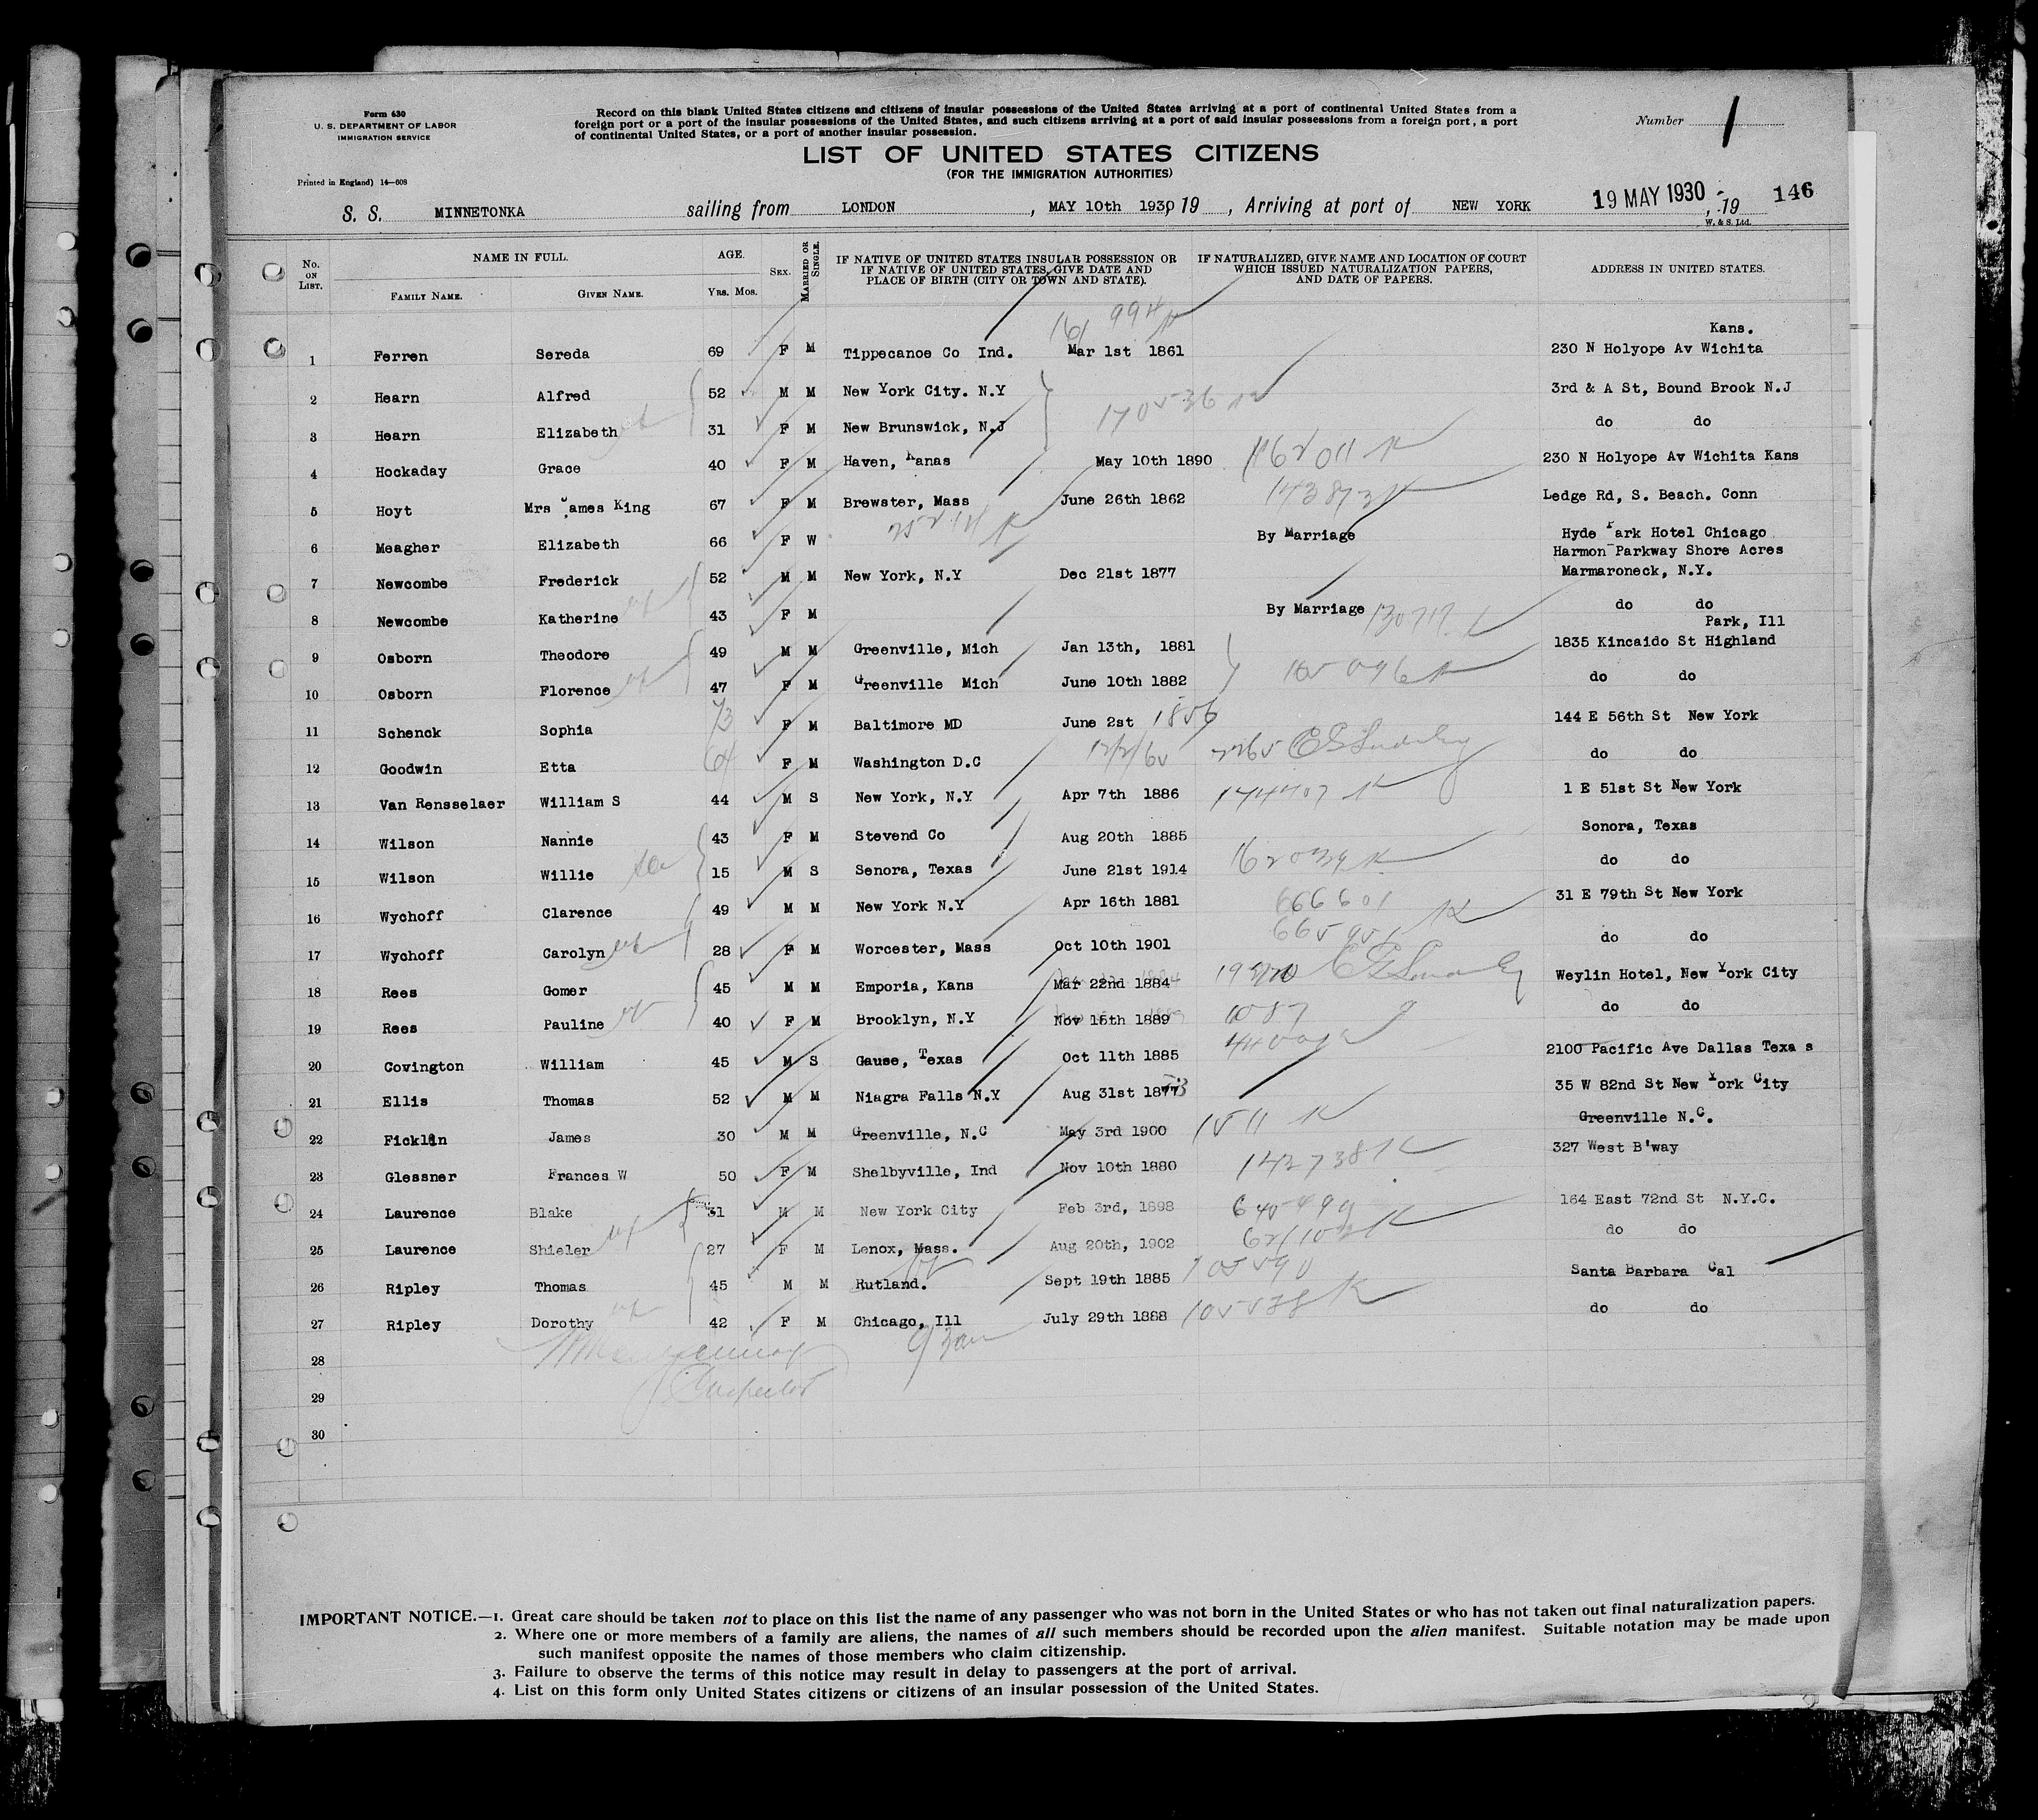 Form 630
U. S. DEPARTMENT OF LABOR
IMMIGRATION SERVICE
Printed in England) 14—608
Record on this blank United States citizens and citizens of insular possessions of the United States arriving at a port of continental United States from a
foreign port or a port of the insular possessions of the United States, and such citizens arriving at a port of said insular possessions from a foreign port, a port
of continental United States, or a port of another insular possession.
Number 1
LIST OF UNITED STATES CITIZENS
(FOR THE IMMIGRATION AUTHORITIES)
S. S. MINNETONKA sailing from LONDON , MAY 10th 1930, 19 , Arriving at port of NEW YORK 19 MAY 1930 , 19 146
W. & S. Ltd.
No. ON LIST. NAME IN FULL. FAMILY NAME. GIVEN NAME. AGE. YRS. MOS. SEX. MARRIED OR SINGLE. IF NATIVE OF UNITED STATES INSULAR POSSESSION OR IF NATIVE OF UNITED STATES, GIVE DATE AND PLACE OF BIRTH (CITY OR TOWN AND STATE). IF NATURALIZED, GIVE NAME AND LOCATION OF COURT WHICH ISSUED NATURALIZATION PAPERS, AND DATE OF PAPERS. ADDRESS IN UNITED STATES.
Kans.
1 Ferren Sereda 69 F M Tippecanoe Co Ind. Mar 1st 1861 230 N Holyope Av Wichita
2 Hearn Alfred 52 M M New York City. N.Y 3rd & A St, Bound Brook N.J
3 Hearn Elizabeth 31 F M New Brunswick, N.J do do
4 Hockaday Grace 40 F M Haven, Kanas May 10th 1890 162011 230 N Holyope Av Wichita Kans
5 Hoyt Mrs James King 67 F M Brewster, Mass June 26th 1862 143873 Ledge Rd, S. Beach. Conn
6 Meagher Elizabeth 66 F W By Marriage Hyde Park Hotel Chicago
Harmon Parkway Shore Acres
7 Newcombe Frederick 52 M M New York, N.Y Dec 21st 1877 Marmaroneck, N.Y.
8 Newcombe Katherine 43 F M By Marriage 130717 do do
Park, Ill
9 Osborn Theodore 49 M M Greenville, Mich Jan 13th, 1881 1835 Kincaido St Highland
10 Osborn Florence 47 F M Greenville Mich June 10th 1882 do do
11 Schenck Sophia 73 F M Baltimore MD June 2st 1856 144 E 56th St New York
12 Goodwin Etta 64 F M Washington D.C do do
13 Van Rensselaer William S 44 M S New York, N.Y Apr 7th 1886 1 E 51st St New York
14 Wilson Nannie 43 F M Stevend Co Aug 20th 1885 Sonora, Texas
15 Wilson Willie 15 M S Senora, Texas June 21st 1914 162039 do do
16 Wychoff Clarence 49 M M New York N.Y Apr 16th 1881 666601 31 E 79th St New York
17 Wychoff Carolyn 28 F M Worcester, Mass Oct 10th 1901 do do
18 Rees Gomer 45 M M Emporia, Kans Mar 22nd 1884 Weylin Hotel, New York City
19 Rees Pauline 40 F M Brooklyn, N.Y Nov 15th 1889 do do
20 Covington William 45 M S Gause, Texas Oct 11th 1885 2100 Pacific Ave Dallas Texa s
21 Ellis Thomas 52 M M Niagra Falls N.Y Aug 31st 1877 35 W 82nd St New York City
22 Ficklin James 30 M M Greenville, N.C May 3rd 1900 Greenville N.C.
23 Glessner Frances W 50 F M Shelbyville, Ind Nov 10th 1880 142738 327 West B'way
24 Laurence Blake 31 M M New York City Feb 3rd, 1898 164 East 72nd St N.Y.C.
25 Laurence Shieler 27 F M Lenox, Mass. Aug 20th, 1902 do do
26 Ripley Thomas 45 M M Rutland. Sept 19th 1885 Santa Barbara Cal
27 Ripley Dorothy 42 F M Chicago, Ill July 29th 1888 do do
28
Inspector
29
30
IMPORTANT NOTICE.—1. Great care should be taken not to place on this list the name of any passenger who was not born in the United States or who has not taken out final naturalization papers.
2. Where one or more members of a family are aliens, the names of all such members should be recorded upon the alien manifest. Suitable notation may be made upon
such manifest opposite the names of those members who claim citizenship.
3. Failure to observe the terms of this notice may result in delay to passengers at the port of arrival.
4. List on this form only United States citizens or citizens of an insular possession of the United States.